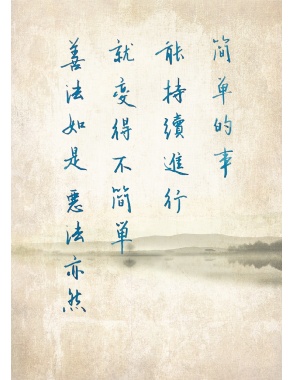 简单的事
能持續進行
就變得不简單
善法如是惡法亦然